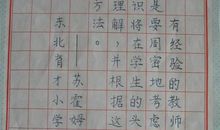 经验的教师
是要有周密地考虑
识将在学生的头
理解，并根据这
方法。
——苏霍姆
东北育才小学